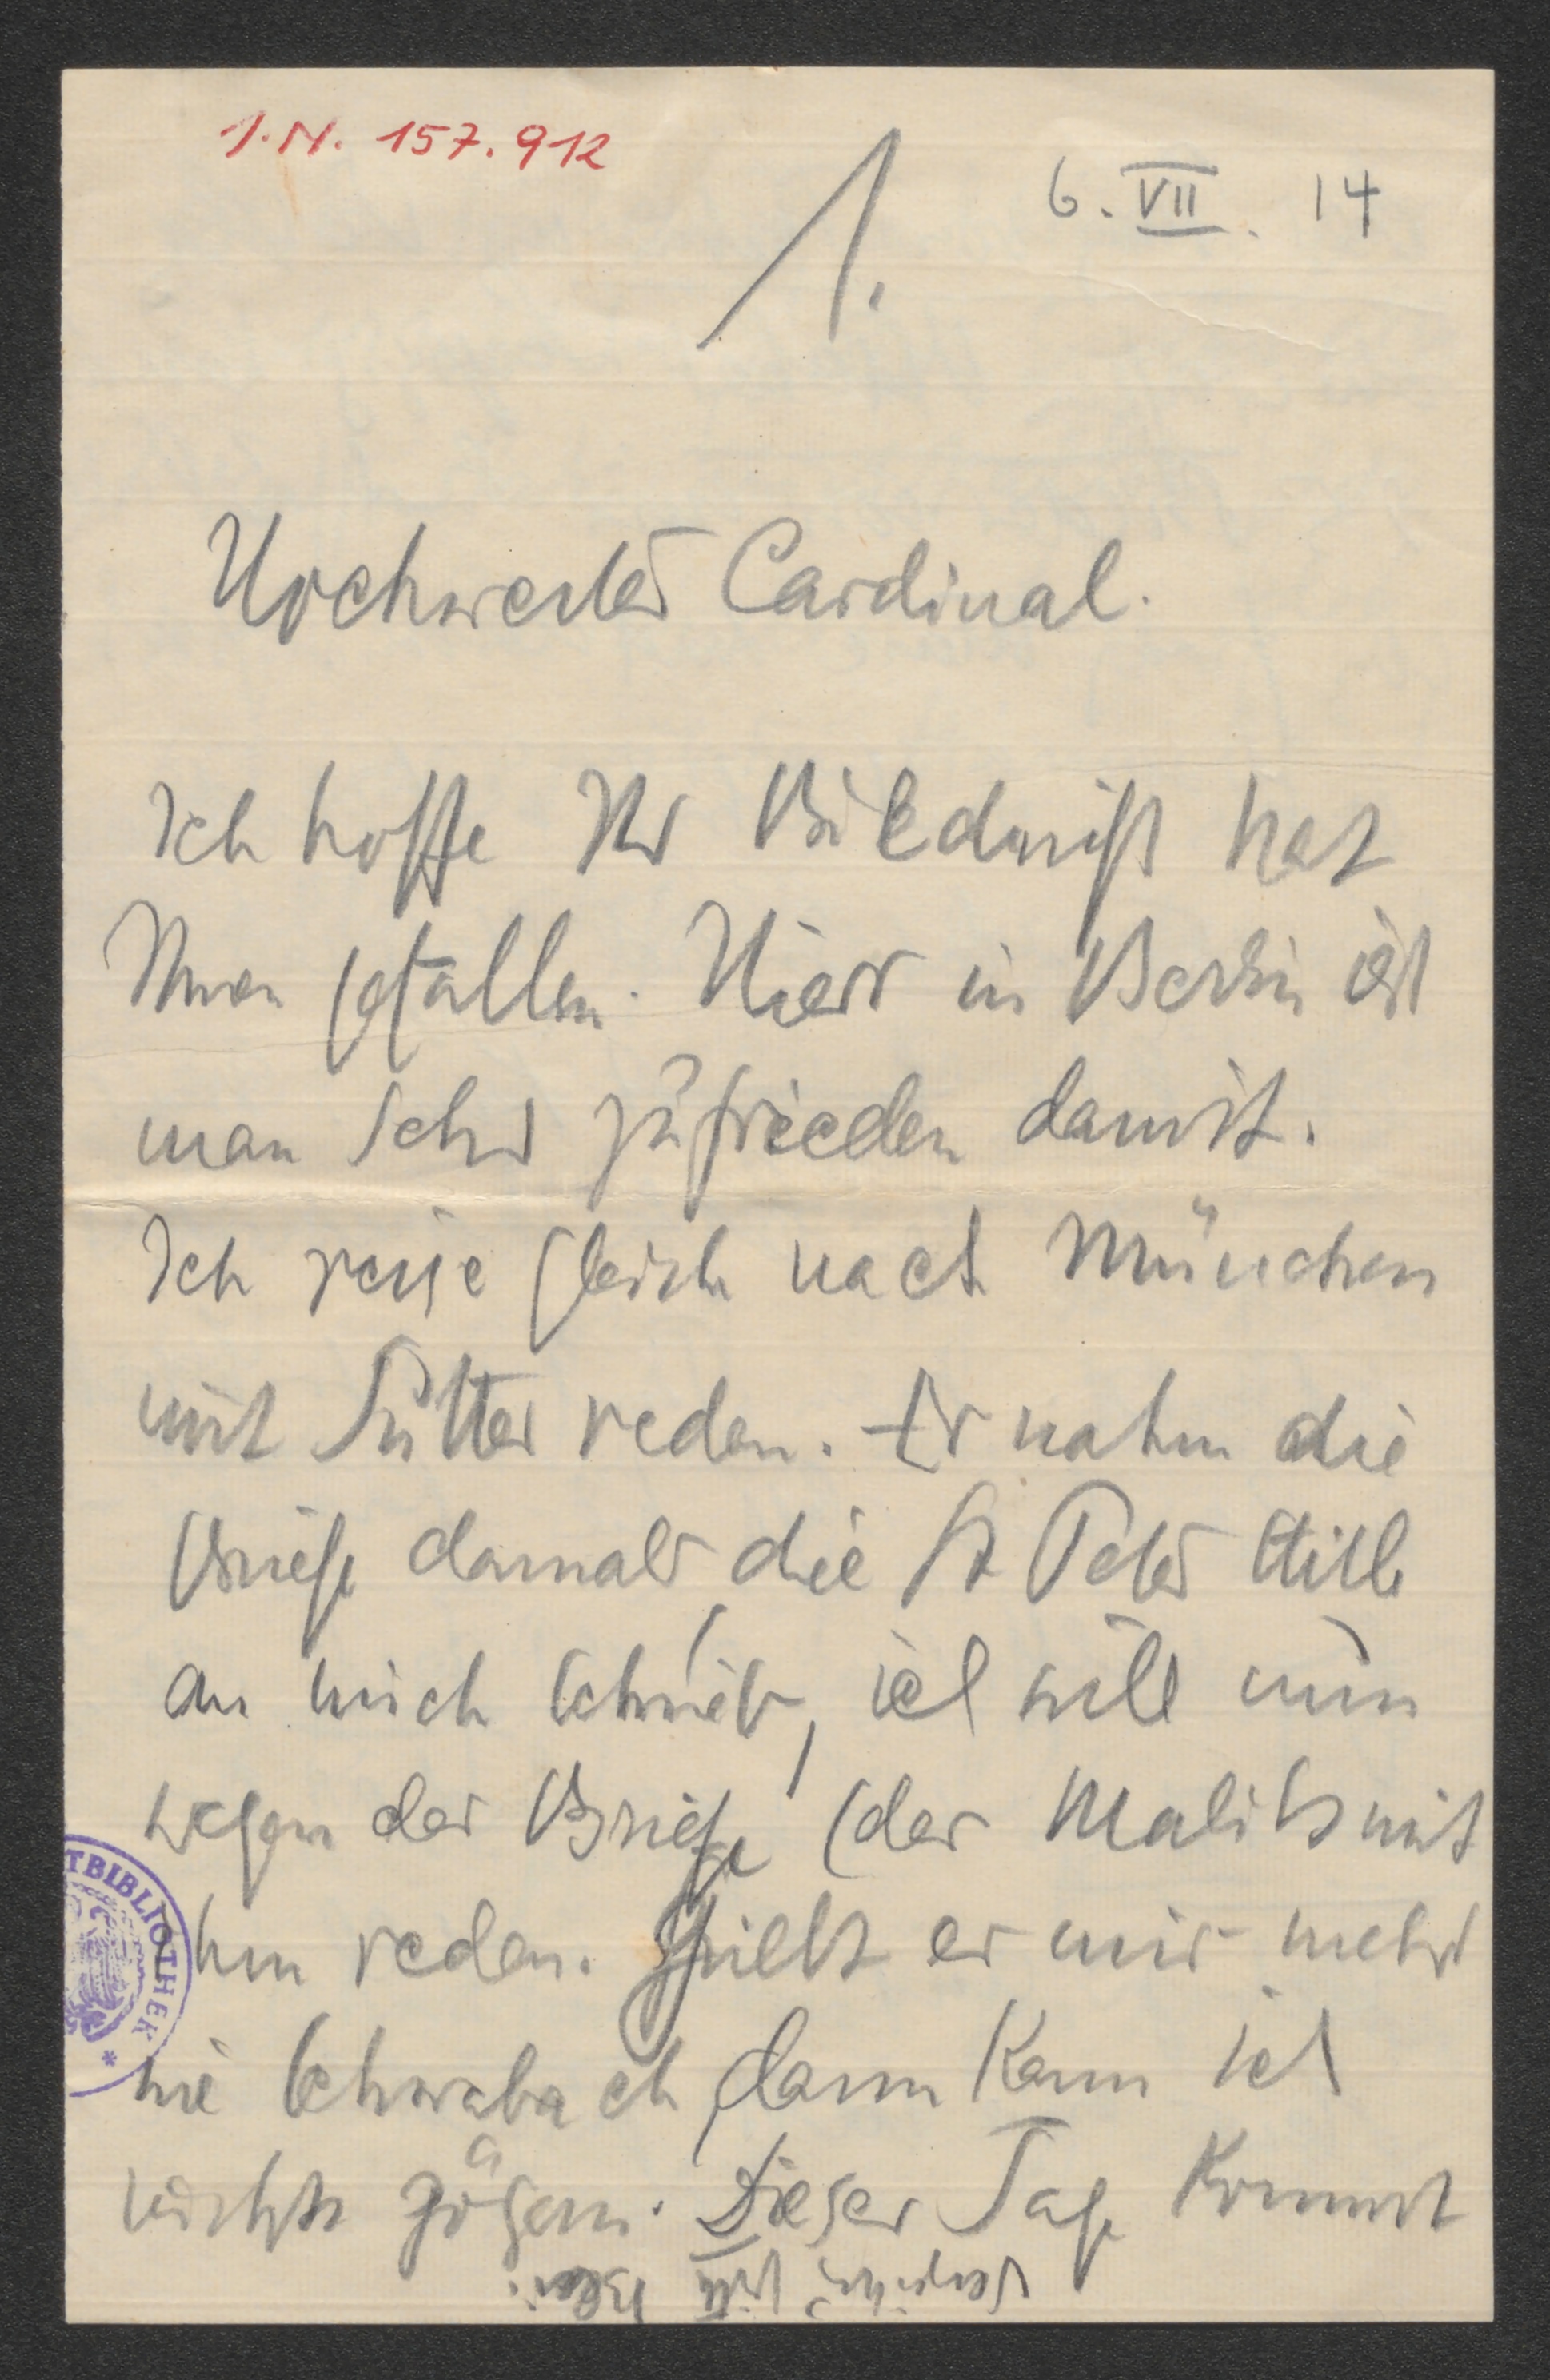 I.N. 157.912
1.
6. VII. 14
Hochwerter Cardinal.
Ich hoffe Ihr Bildniß hat
Ihnen gefallen. Hier in Berlin ist
man sehr zufrieden damit.
Ich reise gleich nach München
mit Sutter reden. Er nahm die
Briefe damals, die St Peter Hille
an mich schrieb, ich will nun
wegen der Briefe (der Maliks mit
ihm reden. Giebt er mir mehr
wie Schwabach, dann kann ich
nichts zögern. Dieser Tage kommt
TBIBLIOTHEK